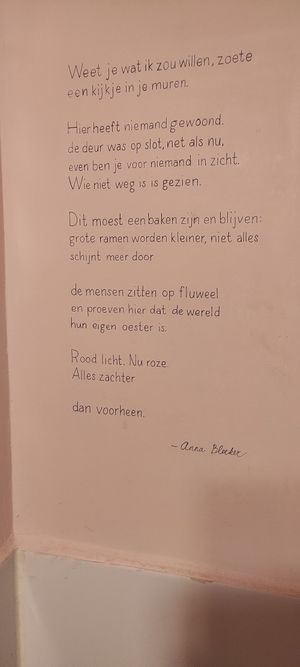 Weet je wat ik zou willen, zoete
een kijkje in je muren.
Hier heeft niemand gewoond.
de deur was op slot, net als nu,
even ben je voor niemand in zicht.
Wie niet weg is is gezien.
Dit moest een baken zijn en blijven:
grote ramen worden kleiner, niet alles
schijnt meer door
de mensen zitten op fluweel
en proeven hier dat de wereld
hun eigen oester is.
Rood licht. Nu roze.
Alles zachter
dan voorheen.
- Anna Bleeker